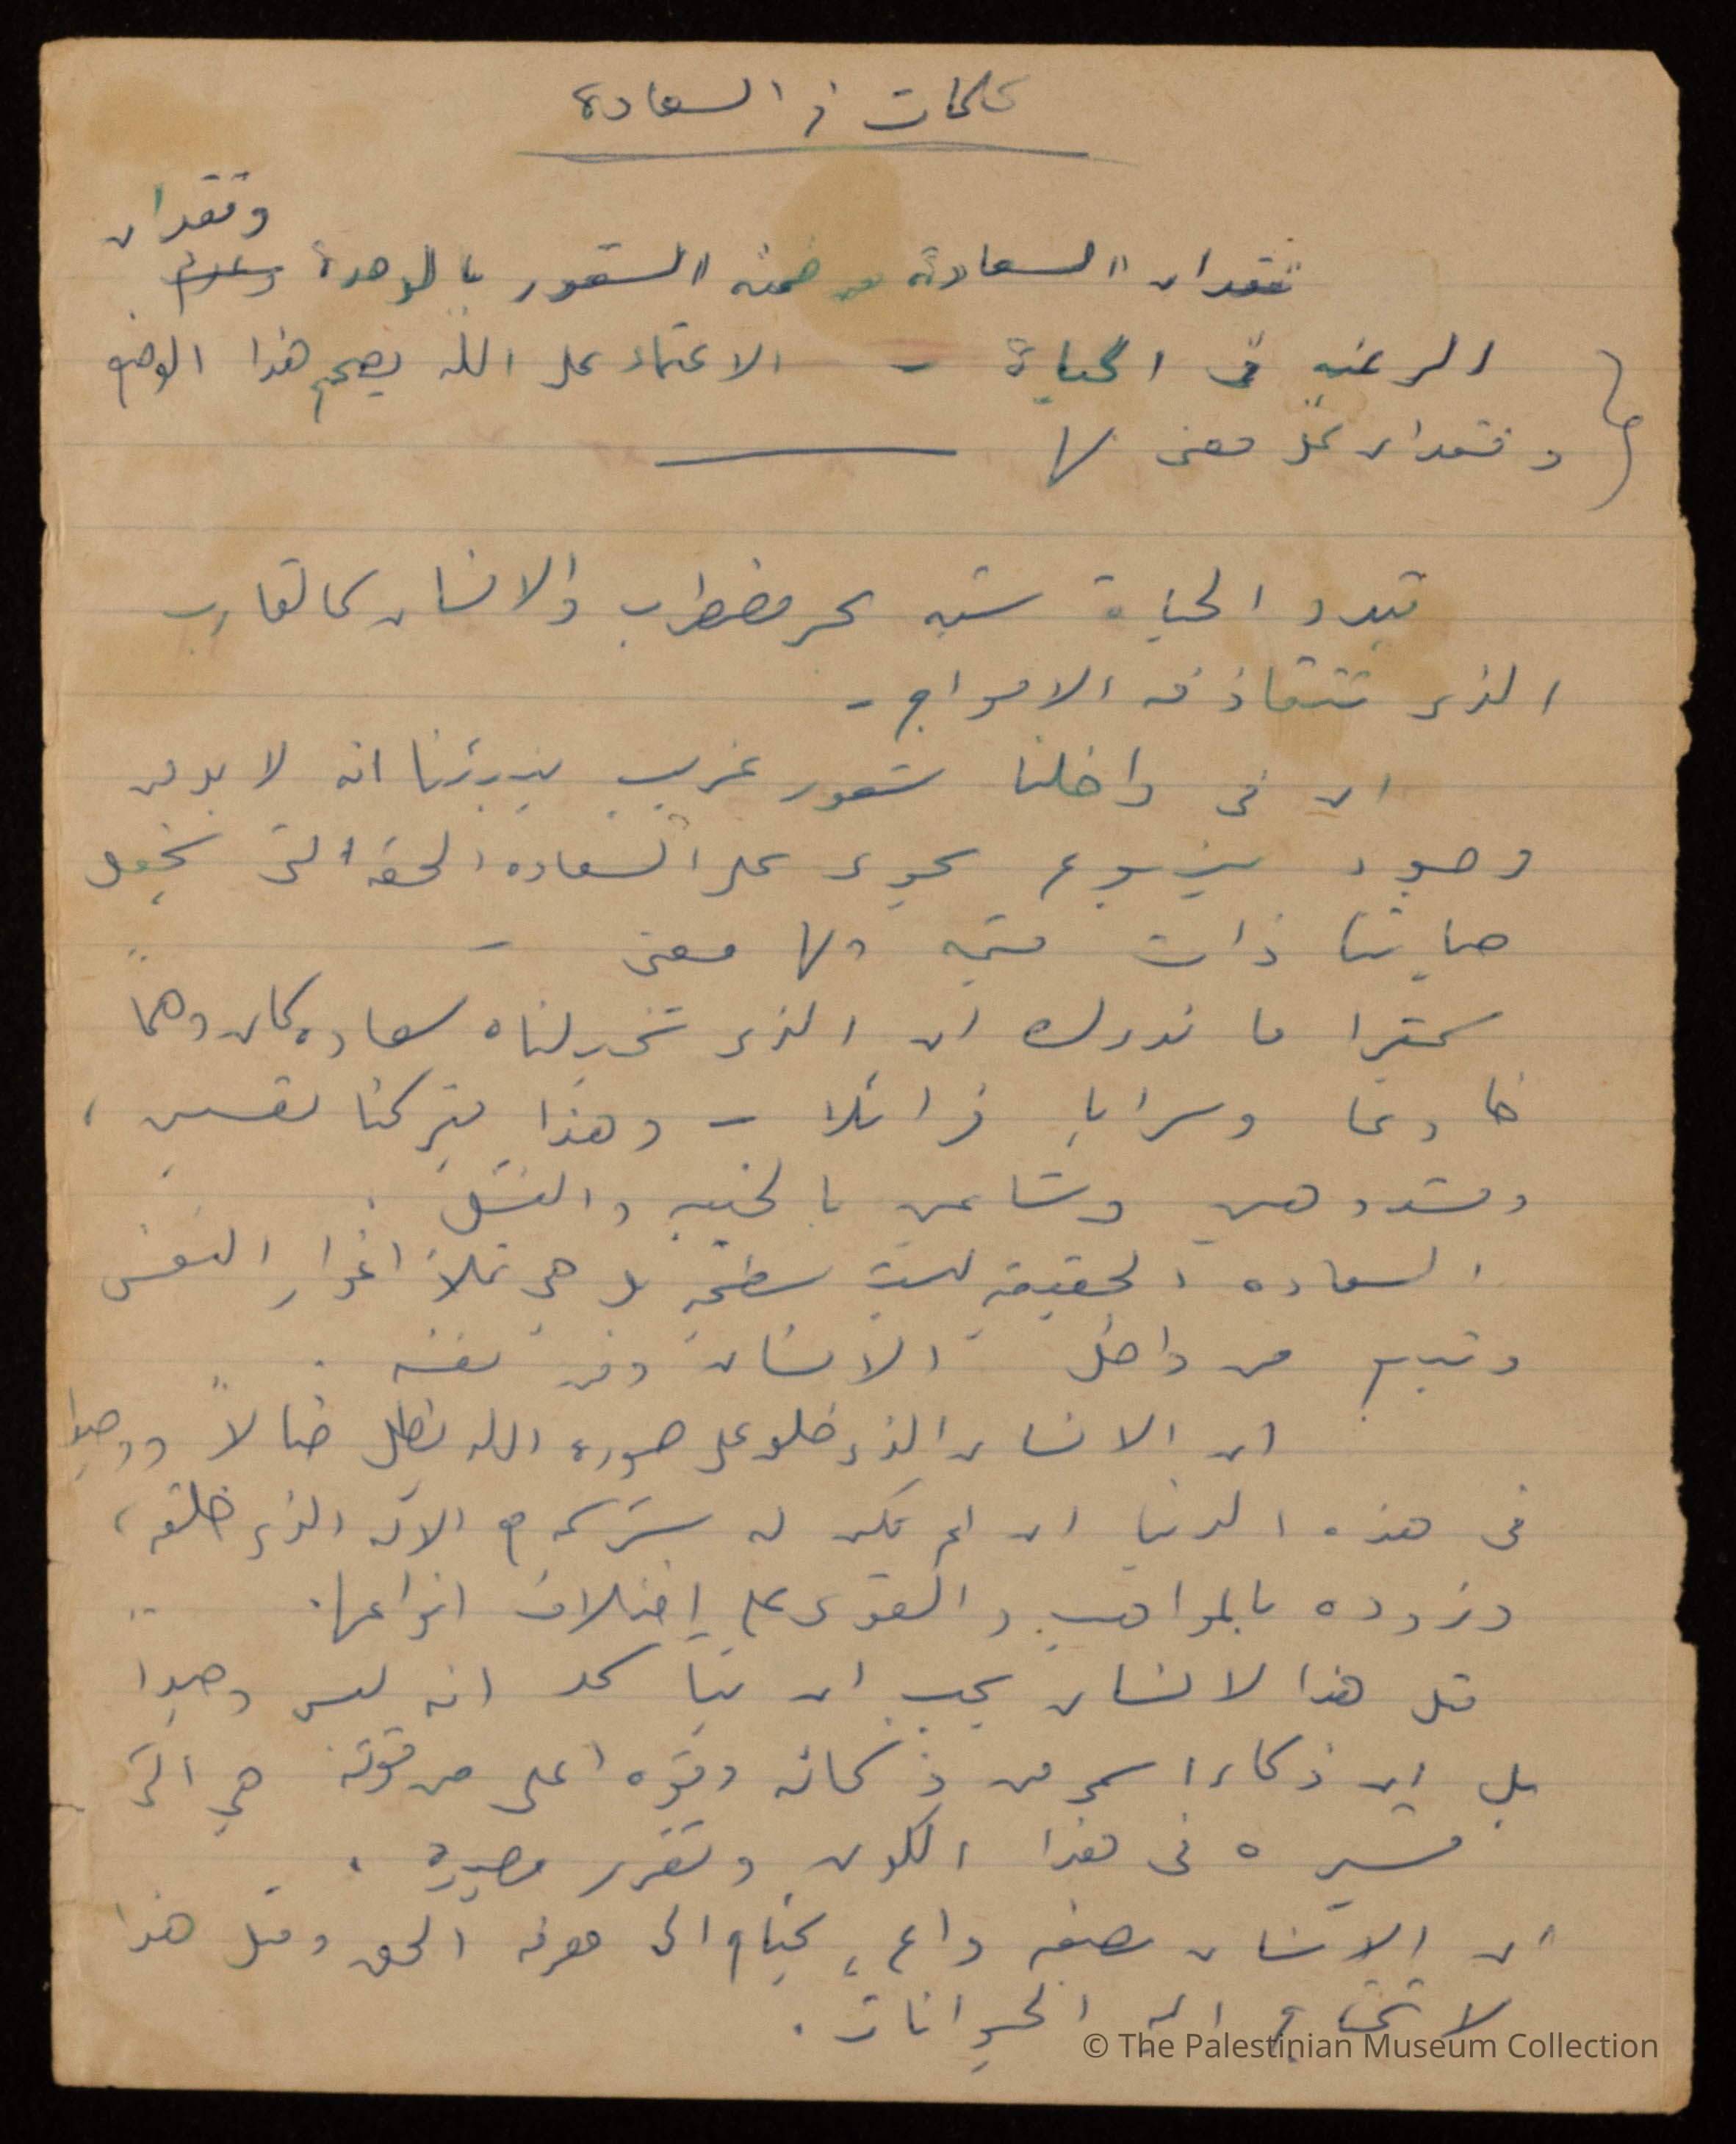 كلمات في السعادة
وفقدان
فقدان السعادة من ضمنه الشعور بالوحدة وعدم
الرغبه في الحياة - الاعتماد على الله يصحح هذا الوضع
وفقدان كل معنى لها
تبدو الحياة شبه بحر مضطرب والانسان كالقارب
الذي تتقاذفه الامواج -
ان في داخلنا شعور غريب ينبئنا انه لا بد من
وجود ينبوع يحوي على السعاده الحقه التي تجعل
حياتنا ذات قيمه ولها معنى -
كثيرا ما ندرك ان الذي تخيلناه سعاده كان وهماً
خادعا وسرابا زائلا - وهذا يتركنا تعسين ،
ومشدوهين وشاعرين بالخيبه والفشل .
السعاده الحقيقيه ليست سطحيه بل هي تملأ اغوار النفس
وتنبع من داخل الانسان ومن نفسه .
ان الانسان الذي خلق على صورة الله يظل ضالاً ووحيدا
في هذه الدنيا ان لم تكن له شركه مع الاله الذي خلقه ،
وزوده بالمواهب والقوى على اختلاف انواعها .
مثل هذا الانسان يجب ان يتأكد انه ليس وحيداً
بل ان ذكاءا اسمى من ذكائه وقوه اعلى من قوته هي التي
تسيره في هذا الكون وتقرر مصيره .
ان الانسان بصفته واع ، يحتاج الى معرفه الحق ومثل هذا
لا تحتاج اليه الحيوانات .
© The Palestinian Museum Collection